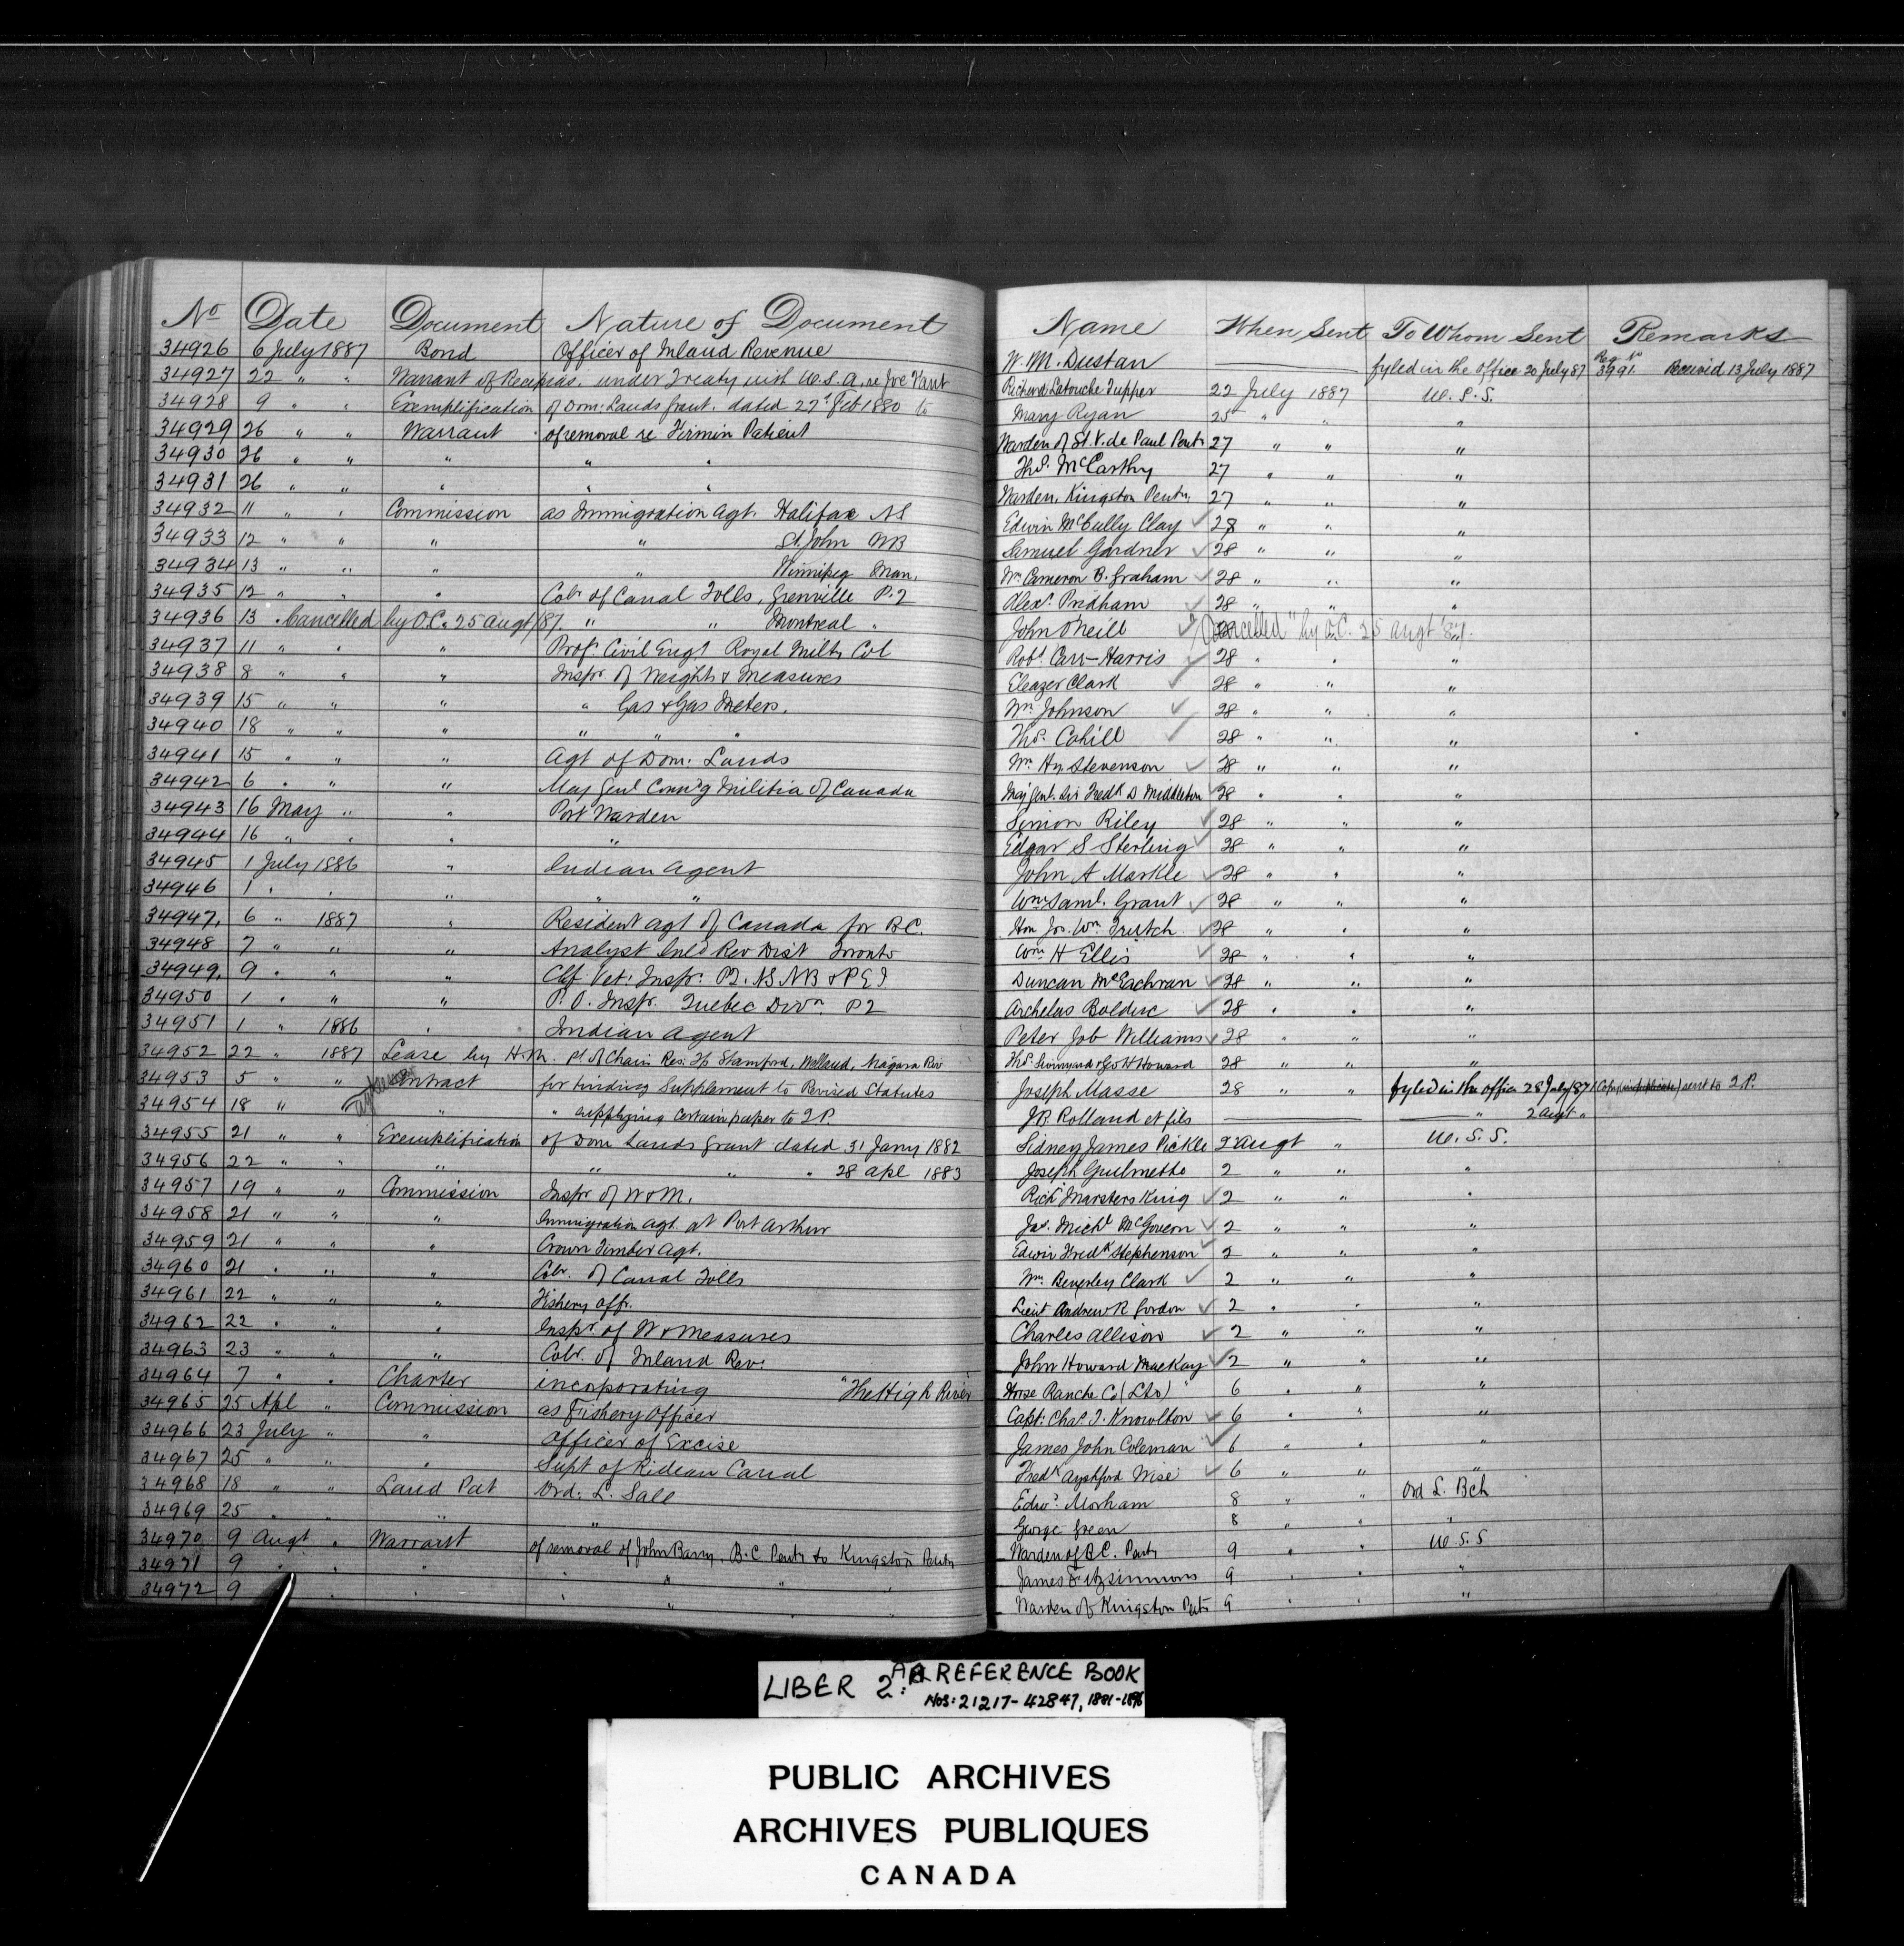 No Date Document Nature of Document Name When Sent To Whom Sent Remarks
34926 6 July 1887 Bond Officer of Inland Revenue W. M. Dustan fyled in the office 20 July 87 Reg. No 3991. Received 13 July 1887
34927 22 " " Warrant of Recipias. under Treaty with U.S.A. re Joe Richard Latouche Tupper 22 July 1887 U. S. S.
34928 9 " " Exemplification of Dom: Lands Grant. dated 27 Feb 1880 to Mary Ryan 25 " " "
34929 26 " " Warrant of removal re Firmin Patient Warden of St. V. de Paul Penty 27 " " "
34930 26 " " " " " Thos. McCarthy 27 " " "
34931 26 " " " " " Warden, Kingston Penty, 27 " " "
34932 11 " " Commission as Immigration Agt. Halifax NS Edwin McCully Clay ✓ 28 " " "
34933 12 " " " " St. John NB Samuel Gardner ✓ 28 " " "
34934 13 " " " " Winnipeg Man. Wm Cameron B. Graham ✓ 28 " " "
34935 12 " " " Colr of Canal Tolls, Grenville P.Q Alexr. Pridham ✓ 28 " " "
34936 13 " Cancelled by O.C. 25 Augt/87. " " Montreal " John O'Neill ✓ "Cancelled" by O.C. 25 augt '87.
34937 11 " " " Prof. Civil Engt Royal Milty Col Robt. Carr-Harris ✓ 28 " " "
34938 8 " " " Inspr of Weights & Measures Eleazer Clark ✓ 28 " " "
34939 15 " " " " Gas & Gas Meters. Wm Johnson ✓ 28 " " "
34940 18 " " " " " " Thos. Cahill ✓ 28 " " "
34941 15 " " " Agt of Dom: Lands Wm Hy Stevenson ✓ 28 " " "
34942 6 " " " Maj Genl Comm'g Militia of Canada Maj Genl. Sir Fredk D Middleton ✓ 28 " " "
34943 16 May " " Port Warden Simon Riley ✓ 28 " " "
34944 16 " " " " Edgar S Sterling ✓ 28 " " "
34945 1 July 1886 " Indian Agent John A Markle ✓ 28 " " "
34946 1 " " " " " Wm Saml. Grant ✓ 28 " " "
34947. 6 " 1887 " Resident Agt of Canada for B.C. Hon Jos. Wm. Trutch ✓ 28 " " "
34948 7 " " " Analyst Inld Rev Dist Toronto Wm H Ellis ✓ 28 " " "
34949. 9 " " " Chf Vet: Inspr: P.Q. NS NB & P E I Duncan McEachran ✓ 28 " " "
34950 1 " " " P. O. Inspr. Quebec Divn P Q Archelas Bolduc ✓ 28 " " "
34951 1 " 1886 " Indian Agent Peter Job Williams ✓ 28 " " "
34952 22 " 1887 Lease by H.M. pt. of Chain Res: Tp Stamford, Welland, Niagara Riv Thos. & Geo H Howard 28 " " "
34953 5 " " Contract for binding Supplement to Revised Statutes Joseph Masse 28 " " fyled in the office 28 July/87 Copy sent to Q.P.
34954 18 " " Agreement " " supplying certain paper to Q P. J.B. Rolland et fils " 2 augt "
34955 21 " " Exemplification of Dom Lands Grant dated 31 Jany 1882 Sidney James Pickle 2 augt " U. S. S.
34956 22 " " " " " " 28 Apl 1883 Joseph Guilmette 2 " " "
34957 19 " " Commission Inspr of W & M. Richd Marsters King ✓ 2 " " "
34958 21 " " " Immigration Agt. at Port Arthur Jas. Michl McGovern ✓ 2 " " "
34959 21 " " " Crown Timber Agt. Edwin Fredk Stephenson ✓ 2 " " "
34960 21 " " " Colr. of Canal Tolls Wm. Beverley Clark ✓ 2 " " "
34961 22 " " " Fishery Offr. Lieut Andrew R Gordon ✓ 2 " " "
34962 22 " " " Inspr. of W & Measures Charles Allison ✓ 2 " " "
34963 23 " " " Colr. of Inland Rev: John Howard MacKay ✓ 2 " " "
34964 7 " " Charter incorporating "The High River Horse Ranche Co (Ltd)" 6 " " "
34965 25 Apl " Commission as Fishery Officer Capt: Chas. T. Knowlton ✓ 6 " " "
34966 23 July " " Officer of Excise James John Coleman ✓ 6 " " "
34967 25 " " " Supt of Rideau Canal Fredk Ayshford Wise ✓ 6 " " "
34968 18 " " Land Pat Ord: L. Sale Edwd. Morham 8 " " Ord L. Bch
34969 25 " " " " George Green 8 " " "
34970 9 Augt " Warrant of removal of John Barry, B.C Penty to Kingston Penty Warden of B.C. Penty 9 " " U. S. S
34971 9 " " " " " " " James Fitzsimmons 9 " " "
34972 9 " " " " " " " Warden of Kingston Penty 9 " " "
LIBER 2: AA REFERENCE BOOK
Nos: 21217-42847, 1881-1896
PUBLIC ARCHIVES
ARCHIVES PUBLIQUES
CANADA